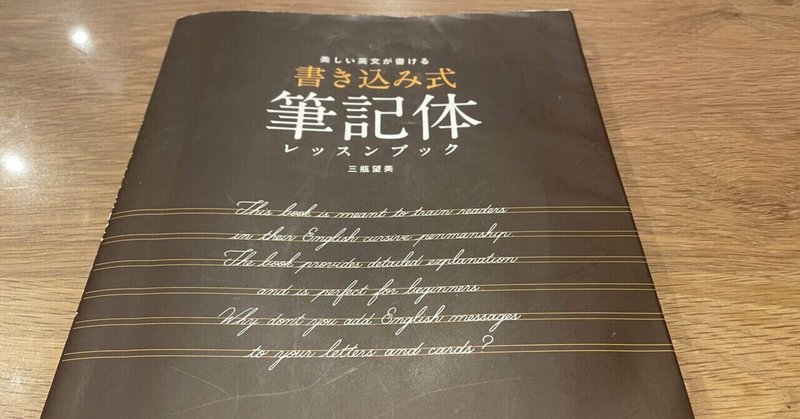 美しい英文が書ける
書き込み式
筆記体
レッスンブック
三瓶望美
This book is meant to train readers
in their English cursive penmanship.
The book provides detailed explanation
and is perfect for beginners.
Why dont you add English messages
to your letters and cards?